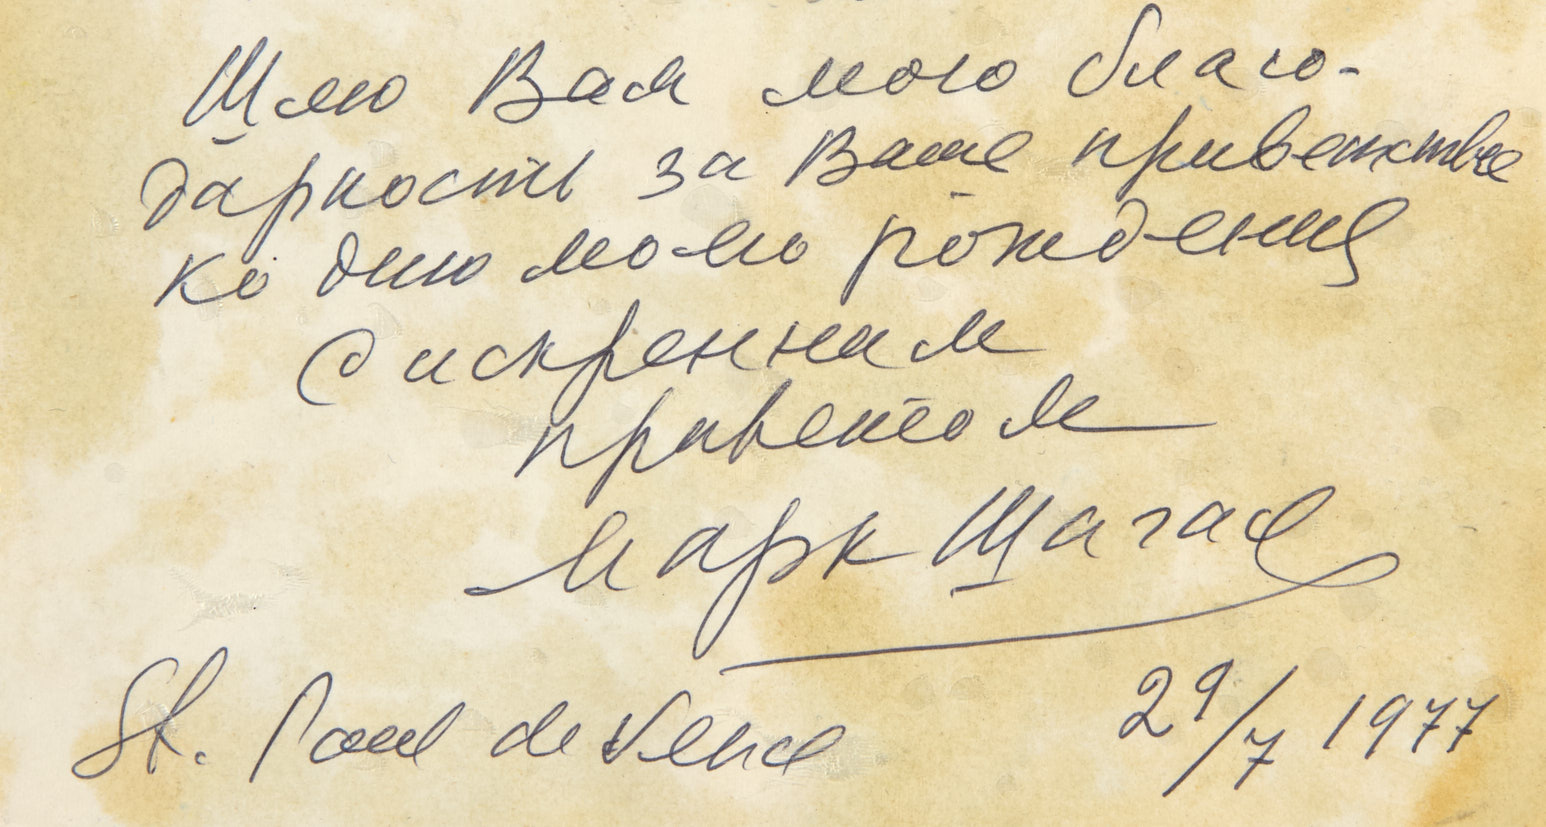 Шлю Вам мою благо-
дарность за Ваше приветствие
ко дню моего рождения
С искренним
приветом
Марк Шагал
St. Paul de Vence
29/7 1977